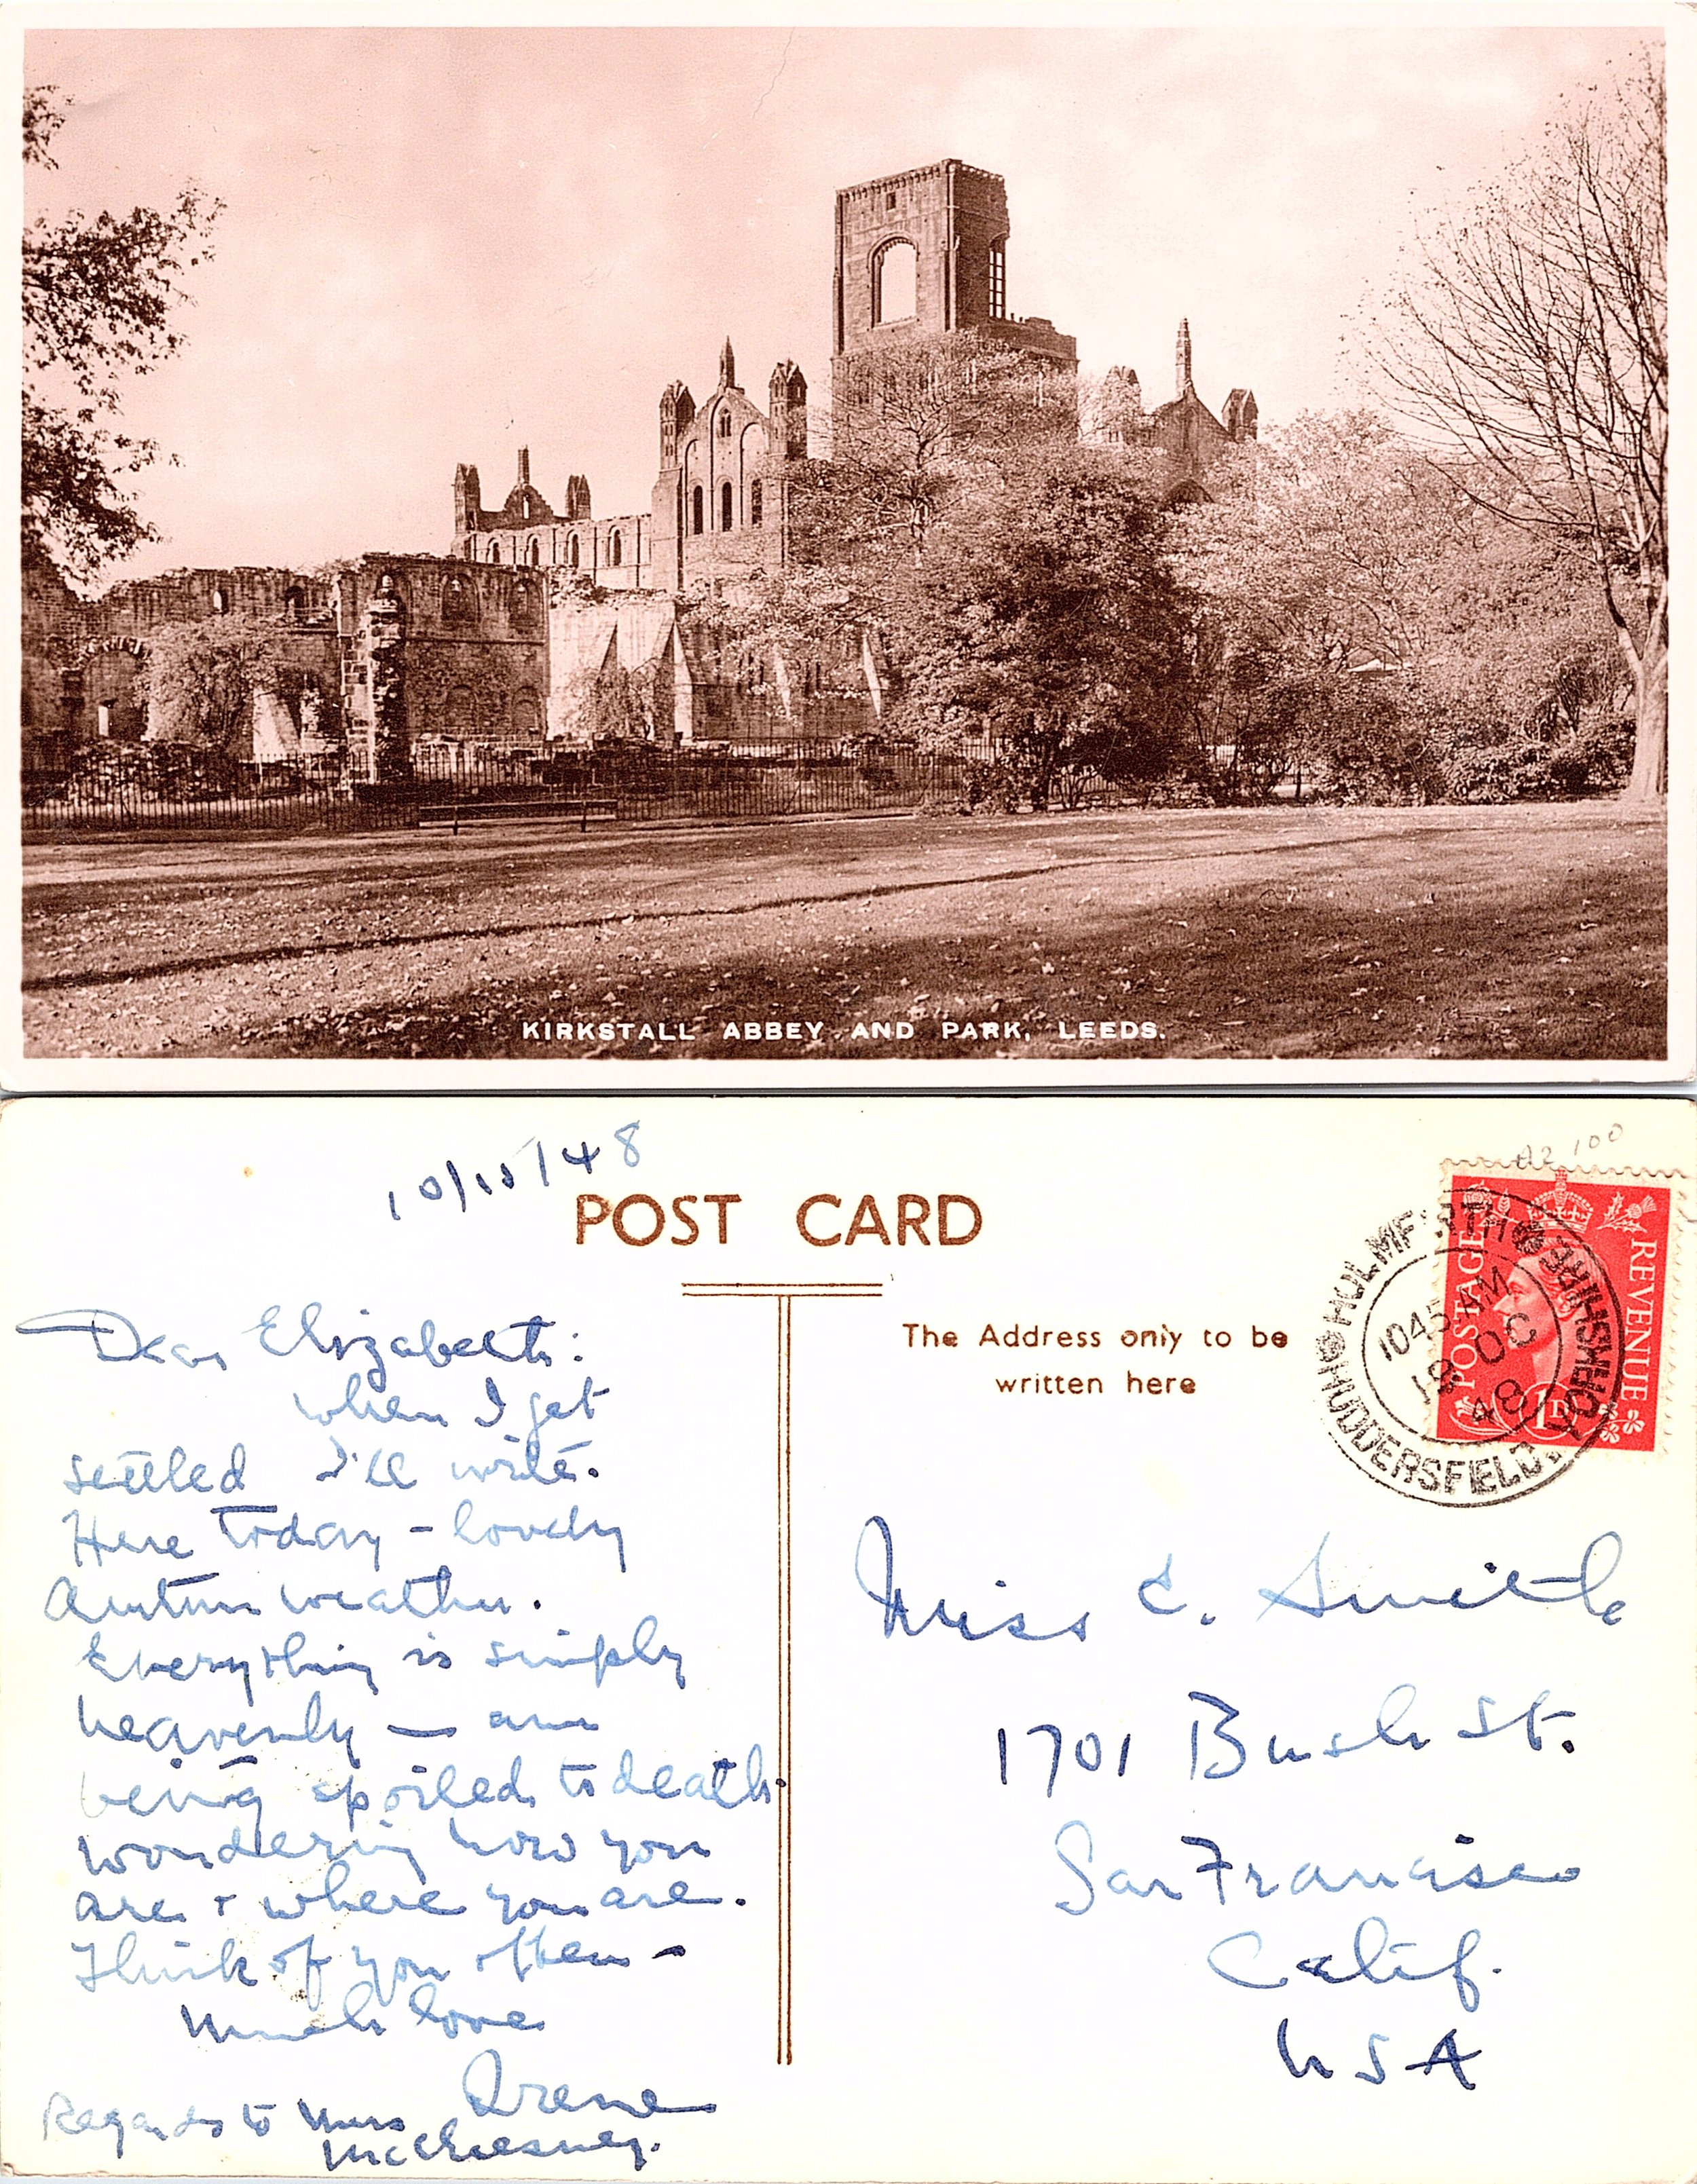 KIRKSTALL ABBEY AND PARK, LEEDS.
10/15/48
POST CARD
A2 100
POSTAGE REVENUE
1D
HOLMFIRTH HUDDERSFIELD YORKSHIRE
1045 AM
18 OC
48
The Address only to be
written here
Dear Elizabeth:
when I get
settled I'll write.
Here today - lovely
Autumn weather.
Everything is simply
heavenly — am
being spoiled to death.
wondering how you
are + where you are.
Think of you often -
Much love
Irene
Regards to Miss
McChesney.
Miss E. Smith
1701 Bush St.
San Francisco
Calif.
USA